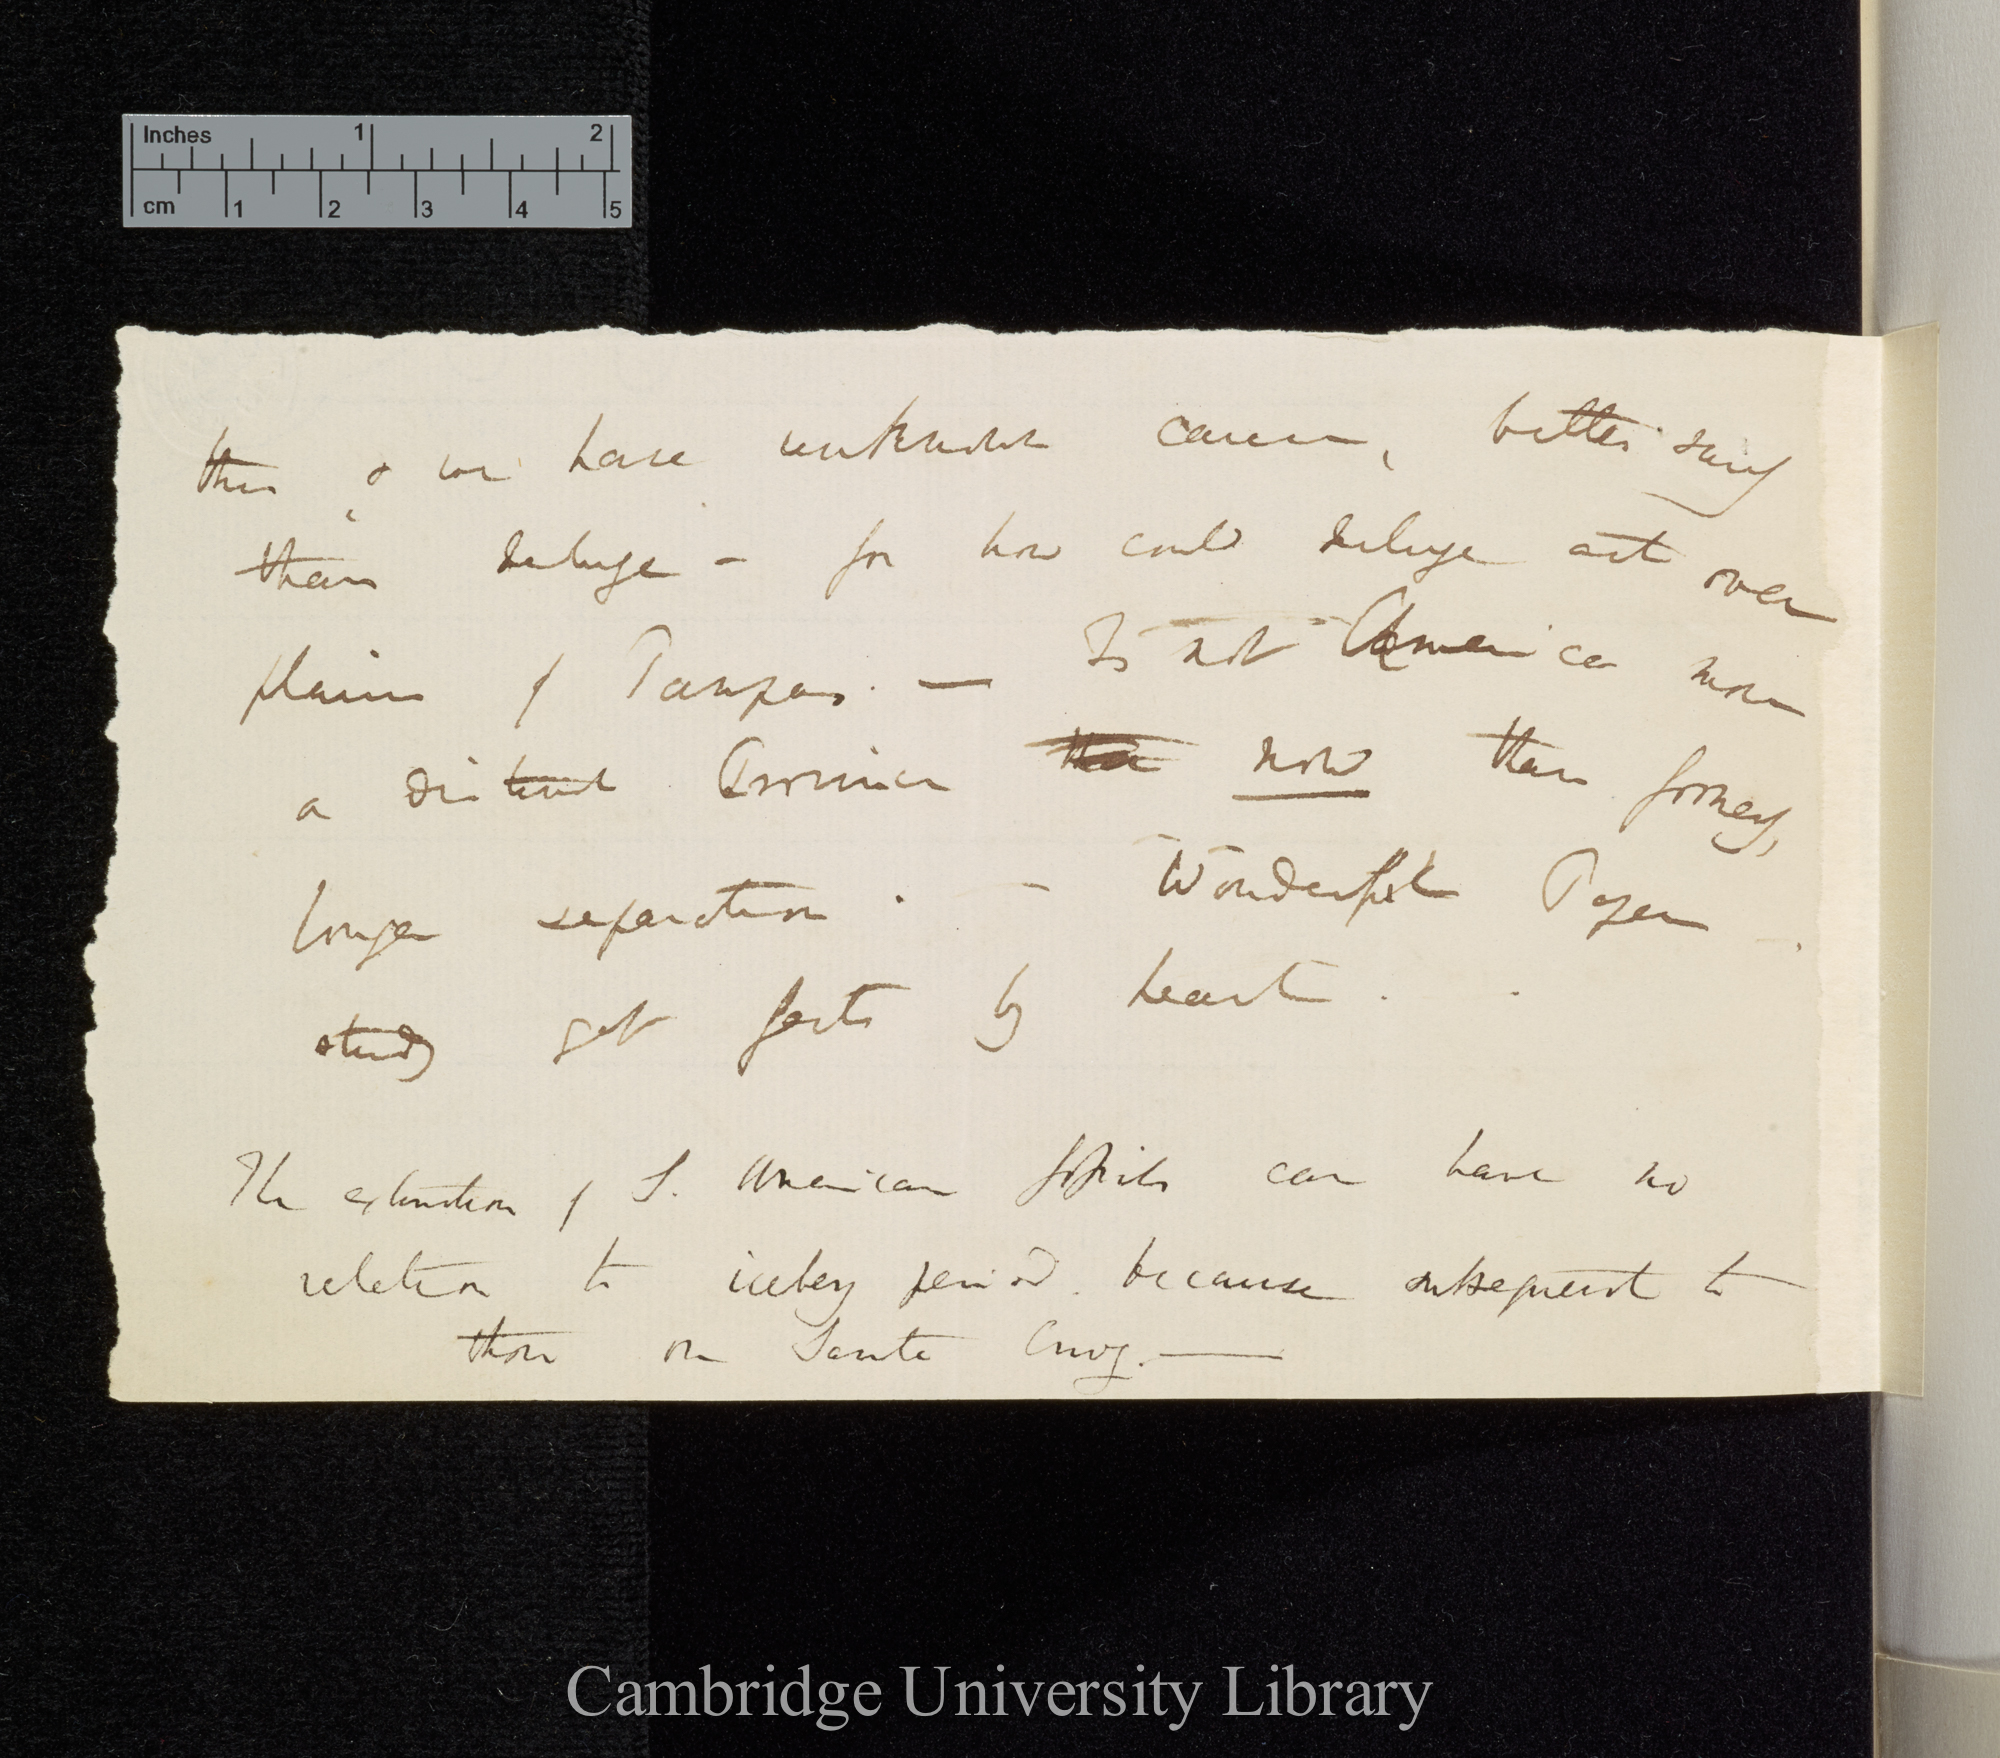 Inches 1 2
cm 1 2 3 4 5
this, & we have unknown causes, better surely
than deluge – for how could deluge act over
plains of Pampas. — Is not America more
a distinct Province now than formerly,
longer separation. – Wonderful Paper –
study get facts by heart.
The extinction of S. American fossils can have no
relation to iceberg period because subsequent to
those on Santa Cruz. —
Cambridge University Library